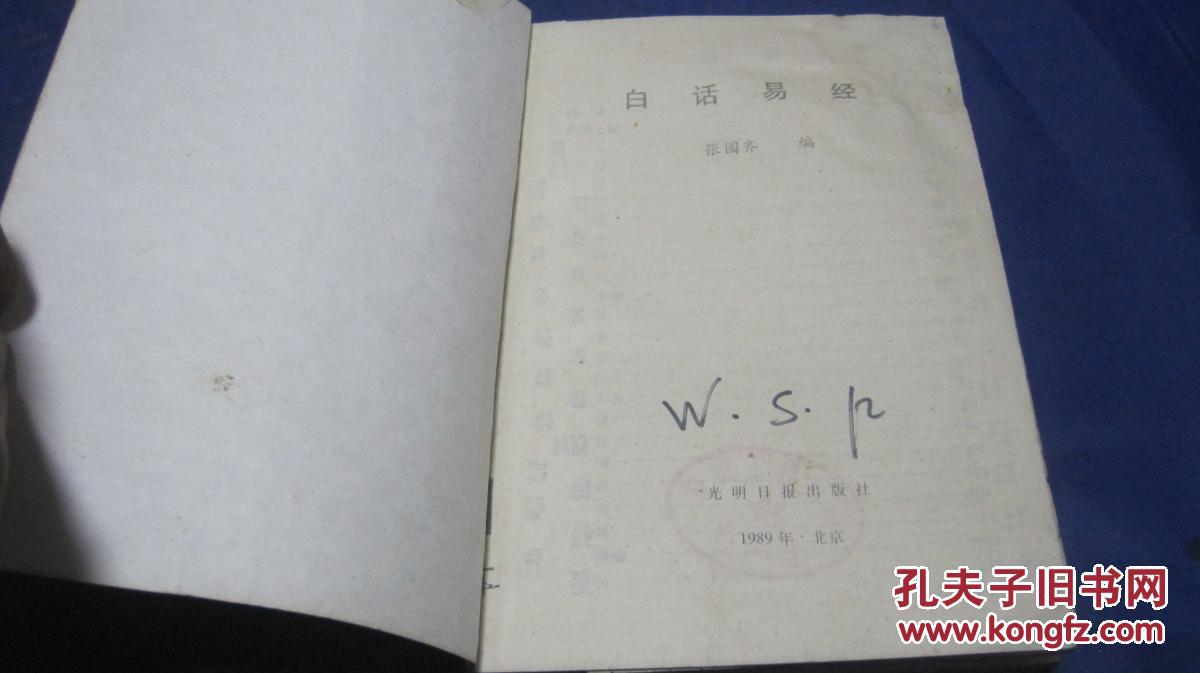 白话易经
张国齐 编
W. S. p
光明日报出版社
1989年·北京
孔夫子旧书网
www.kongfz.com